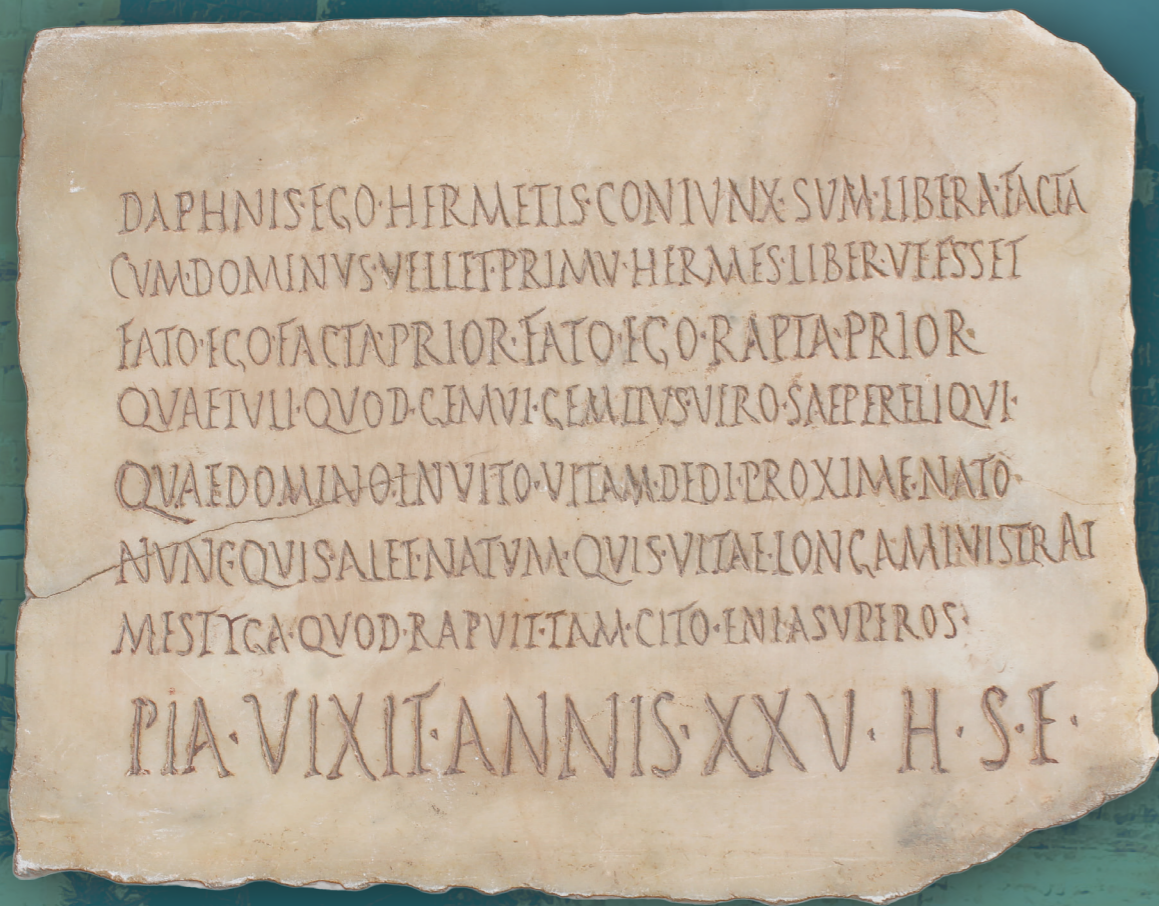 DAPHNIS·EGO·HERMETIS·CONIVNX·SVM·LIBERA·FACTA
CVM·DOMINVS·VELLET·PRIMV·HERMES·LIBER·VT·ESSET
FATO·EGO·FACTA·PRIOR·FATO·EGO·RAPTA·PRIOR·
QVAE·TVLI·QVOD·GEMVI·GEMITVS·VIRO·SAEPE·RELIQVI·
QVAE·DOMINO·INVITO·VITAM·DEDI·PROXIME·NATO·
NVNC·QVIS·ALET·NATVM·QVIS·VITAE·LONGA·MINISTRAT
ME·STYGA·QVOD·RAPVIT·TAM·CITO·ENI·A·SVPEROS·
PIA·VIXIT·ANNIS·XXV·H·S·E·